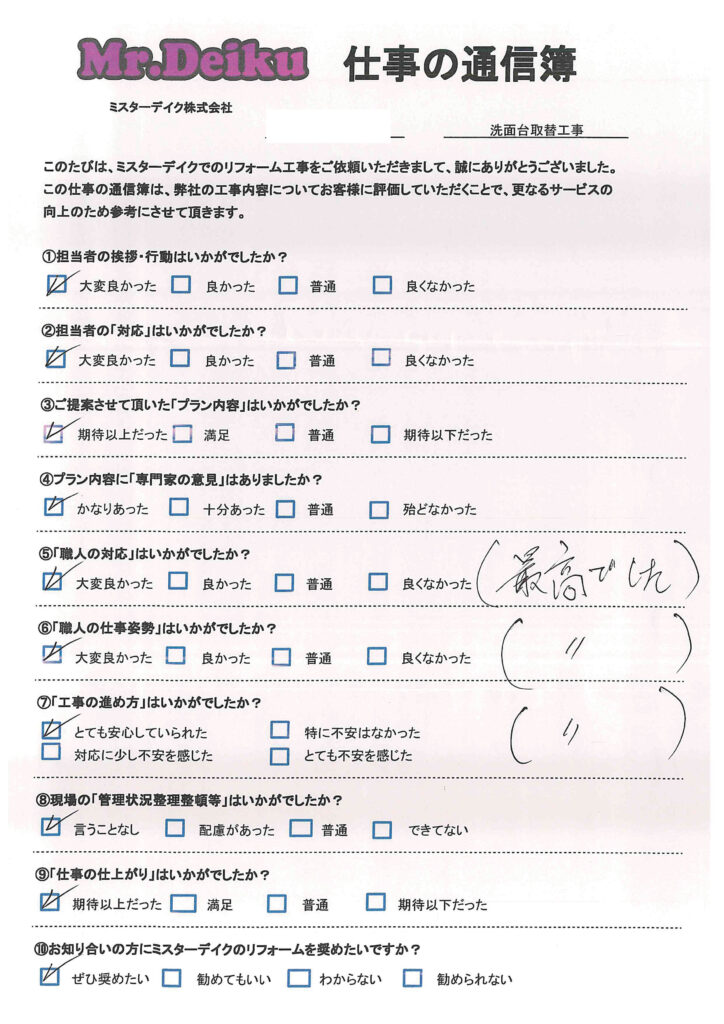 Mr.Deiku 仕事の通信簿
ミスターデイク株式会社
洗面台取替工事
このたびは、ミスターデイクでのリフォーム工事をご依頼いただきまして、誠にありがとうございました。
この仕事の通信簿は、弊社の工事内容についてお客様に評価していただくことで、更なるサービスの
向上のため参考にさせて頂きます。
①担当者の挨拶・行動はいかがでしたか？
大変良かった 良かった 普通 良くなかった
②担当者の「対応」はいかがでしたか？
大変良かった 良かった 普通 良くなかった
③ご提案させて頂いた「プラン内容」はいかがでしたか？
期待以上だった 満足 普通 期待以下だった
④プラン内容に「専門家の意見」はありましたか？
かなりあった 十分あった 普通 殆どなかった
⑤「職人の対応」はいかがでしたか？
大変良かった 良かった 普通 良くなかった (最高でした)
⑥「職人の仕事姿勢」はいかがですか？
大変良かった 良かった 普通 良くなかった (〃)
⑦「工事の進め方」はいかがでしたか？
とても安心していられた 特に不安はなかった (〃)
対応に少し不安を感じた とても不安を感じた
⑧現場の「管理状況整理整頓等」はいかがでしたか？
言うことなし 配慮があった 普通 できてない
⑨「仕事の仕上がり」はいかがでしたか？
期待以上だった 満足 普通 期待以下だった
⑩お知り合いの方にミスターデイクのリフォームを奨めたいですか？
ぜひ奨めたい 勧めてもいい わからない 勧められない